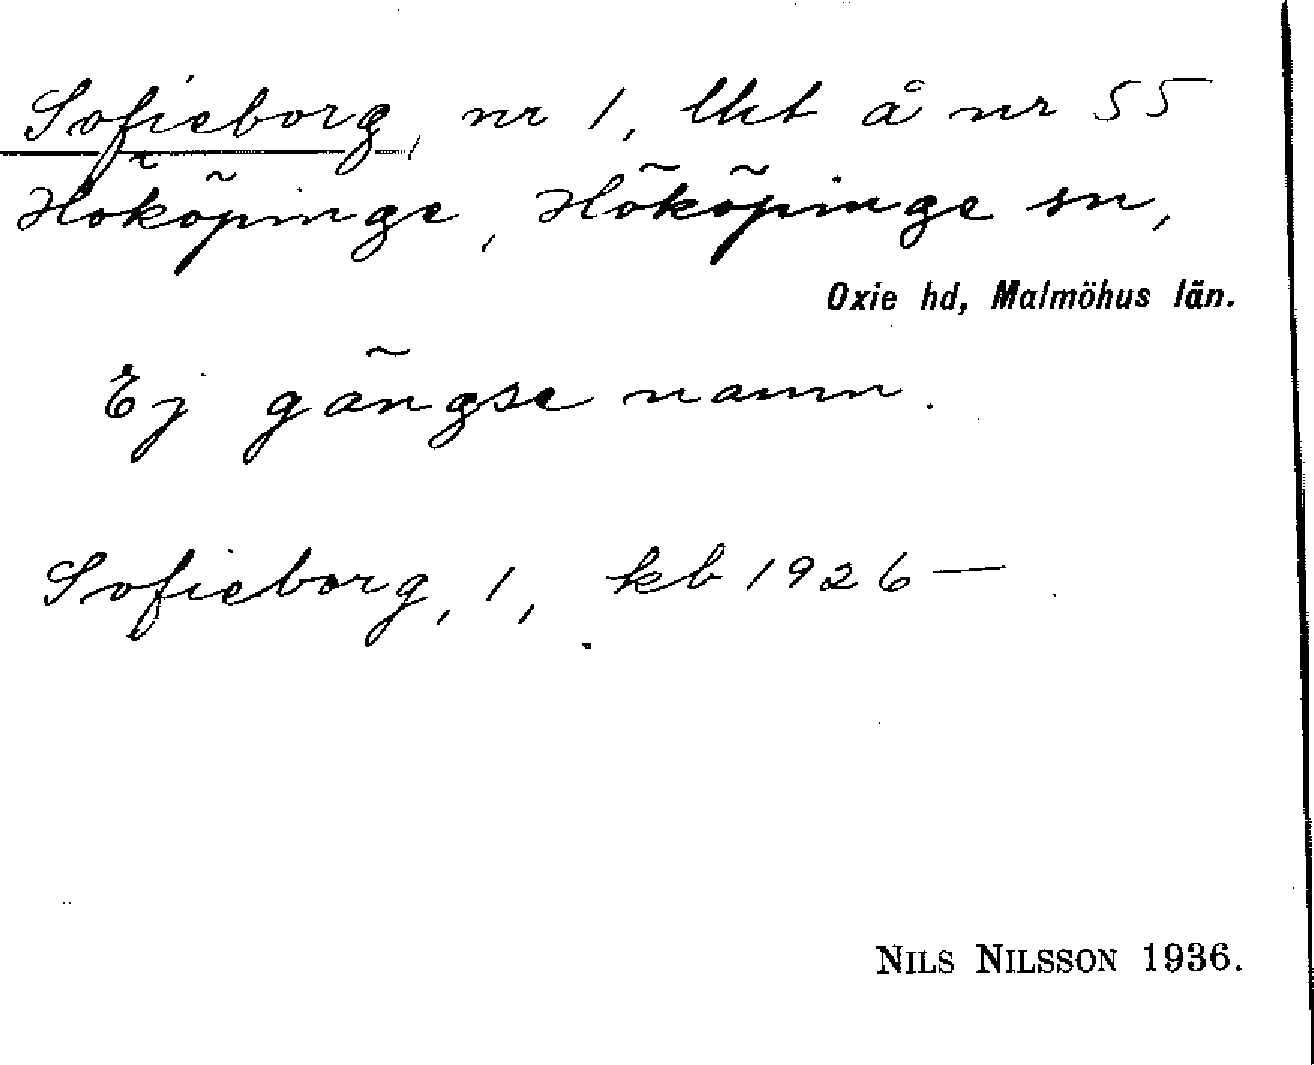 Sofieborg, nr 1, lht å nr 55
Hököpinge, Hököpinge sn,
Oxie hd, Malmöhus län.
Ej gängse namn.
Sofieborg, 1, kb 1926—
NILS NILSSON 1936.